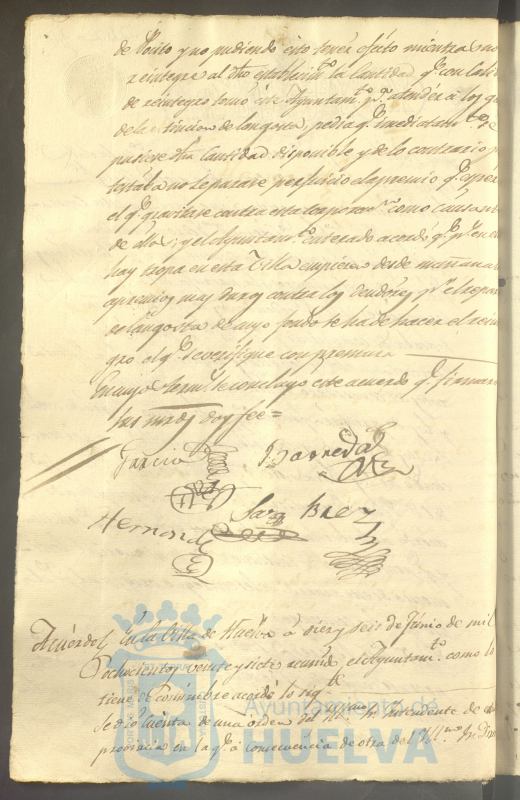 de Pósito y no pudiendo esto tener efecto mientras no
reintegre al dho establecim.to la Cantidad q.e con Calid
de reintegro tomó este Ayuntam.to p.a atender a los ga
de la de langosta, pedia q.e imediatam.te se
pusiese dha Cantidad disponible y de lo contrario p
testaba no le parase perjuicio el apremio
el q.e gravitase contra esta corporac.n como causante
de ella; y el Ayuntam.to enterado acordó q.e p.r
hay tropa en esta Villa empiecen desde mañana
apremios muy duros contra los deudores p.r el repar
en langosta de cuyo fondo se ha de hacer el rein
gro el q.e se verifique con premura
En cuyos term.s se concluyó este acuerdo q.e firmaron
sus mrds doy fee =
Garcia Barreda
Hernand Saz Baez
Acuerdo En la Villa de Huelva a diez y seis de Junio de mil
ochocientos veinte y siete acund. el Ayuntam.to como lo
tiene de costumbre acordó lo sig.te
Se dio cuenta de una orden del Sr. Intendente de
provincia en la q.e a consecuencia de otra del Yll.mo Sr.
Ayuntamiento de
HUELVA